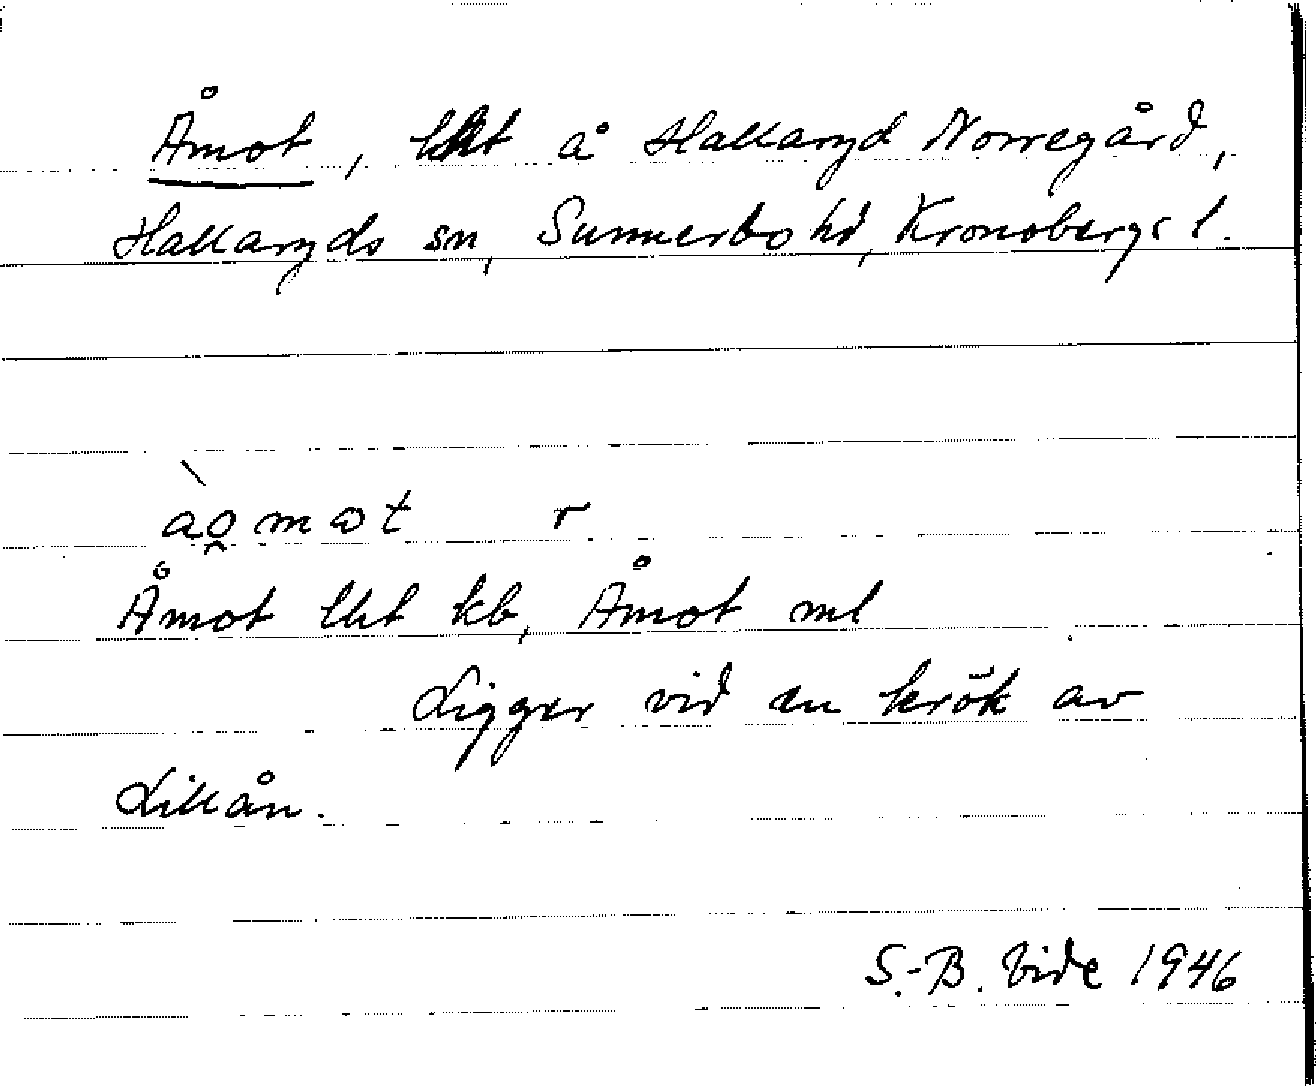 Åmot, lht å Hallaryd Norregård,
Hallaryds sn, Sunnerbo hd, Kronobergs l.
Åmot lht kb, Åmot ml
Ligger vid en krök av
Lillån.
S.-B. Vide 1946